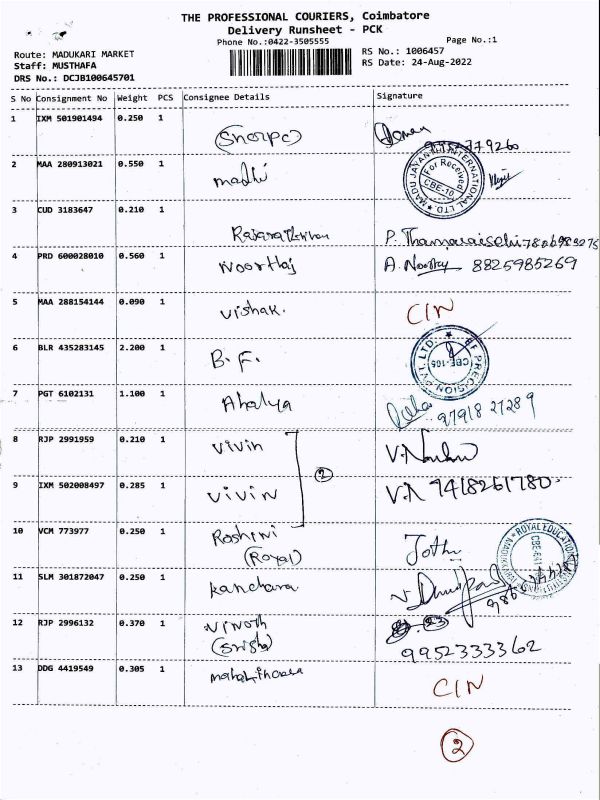 THE PROFESSIONAL COURIERS, Coimbatore
Delivery Runsheet - PCK
Phone No.:0422-3505555 Page No.:1
Route: MADUKARI MARKET RS No.: 1006457
Staff: MUSTHAFA RS Date: 24-Aug-2022
DRS No.: DCJB100645701
S No Consignment No Weight PCS Consignee Details Signature
1 IXM 501901494 0.250 1
2 MAA 280913021 0.550 1 madhi
MADU JAYANTHI INTERNATIONAL LTD.
For Received
CBE-10
3 CUD 3183647 0.210 1
P. Thamaraiselvi
4 PRD 600028010 0.560 1 Noorthaj A. Noorthaj 8825985269
5 MAA 288154144 0.090 1 vishak. CIN
6 BLR 435283145 2.200 1 B.F.
BF PRECISION PVT. LTD.
CBE-105
7 PGT 6102131 1.100 1 Ahalya 97918 27289
8 RJP 2991959 0.210 1 vivin
2
9 IXM 502008497 0.285 1 vivin V.N 9418261780
10 VCM 773977 0.250 1 Roshini
(Royal) Jothi
ROYAL EDUCATION
11 SLM 301872047 0.250 1
12 RJP 2996132 0.370 1
9952333362
13 DDG 4419549 0.305 1 CIN
2